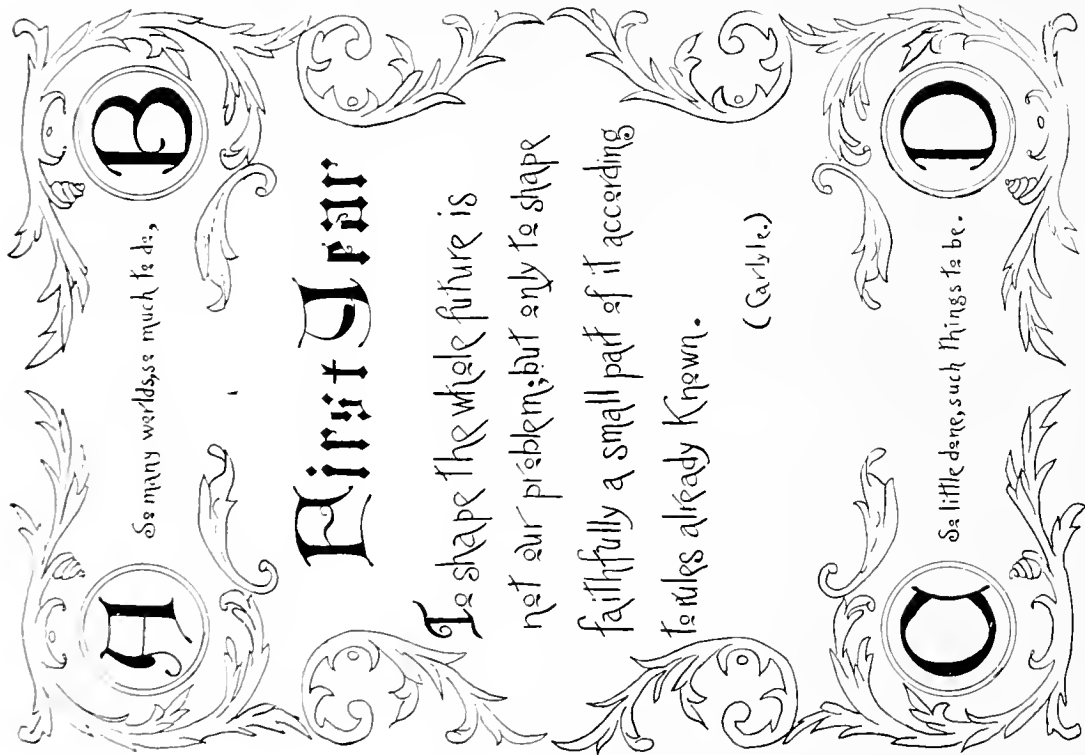 A
So many worlds, so much to do,
B
First Year
To shape the whole future is
not our problem; but only to shape
faithfully a small part of it according
to rules already Known.
(Carlyle.)
C
So little done, such things to be.
D